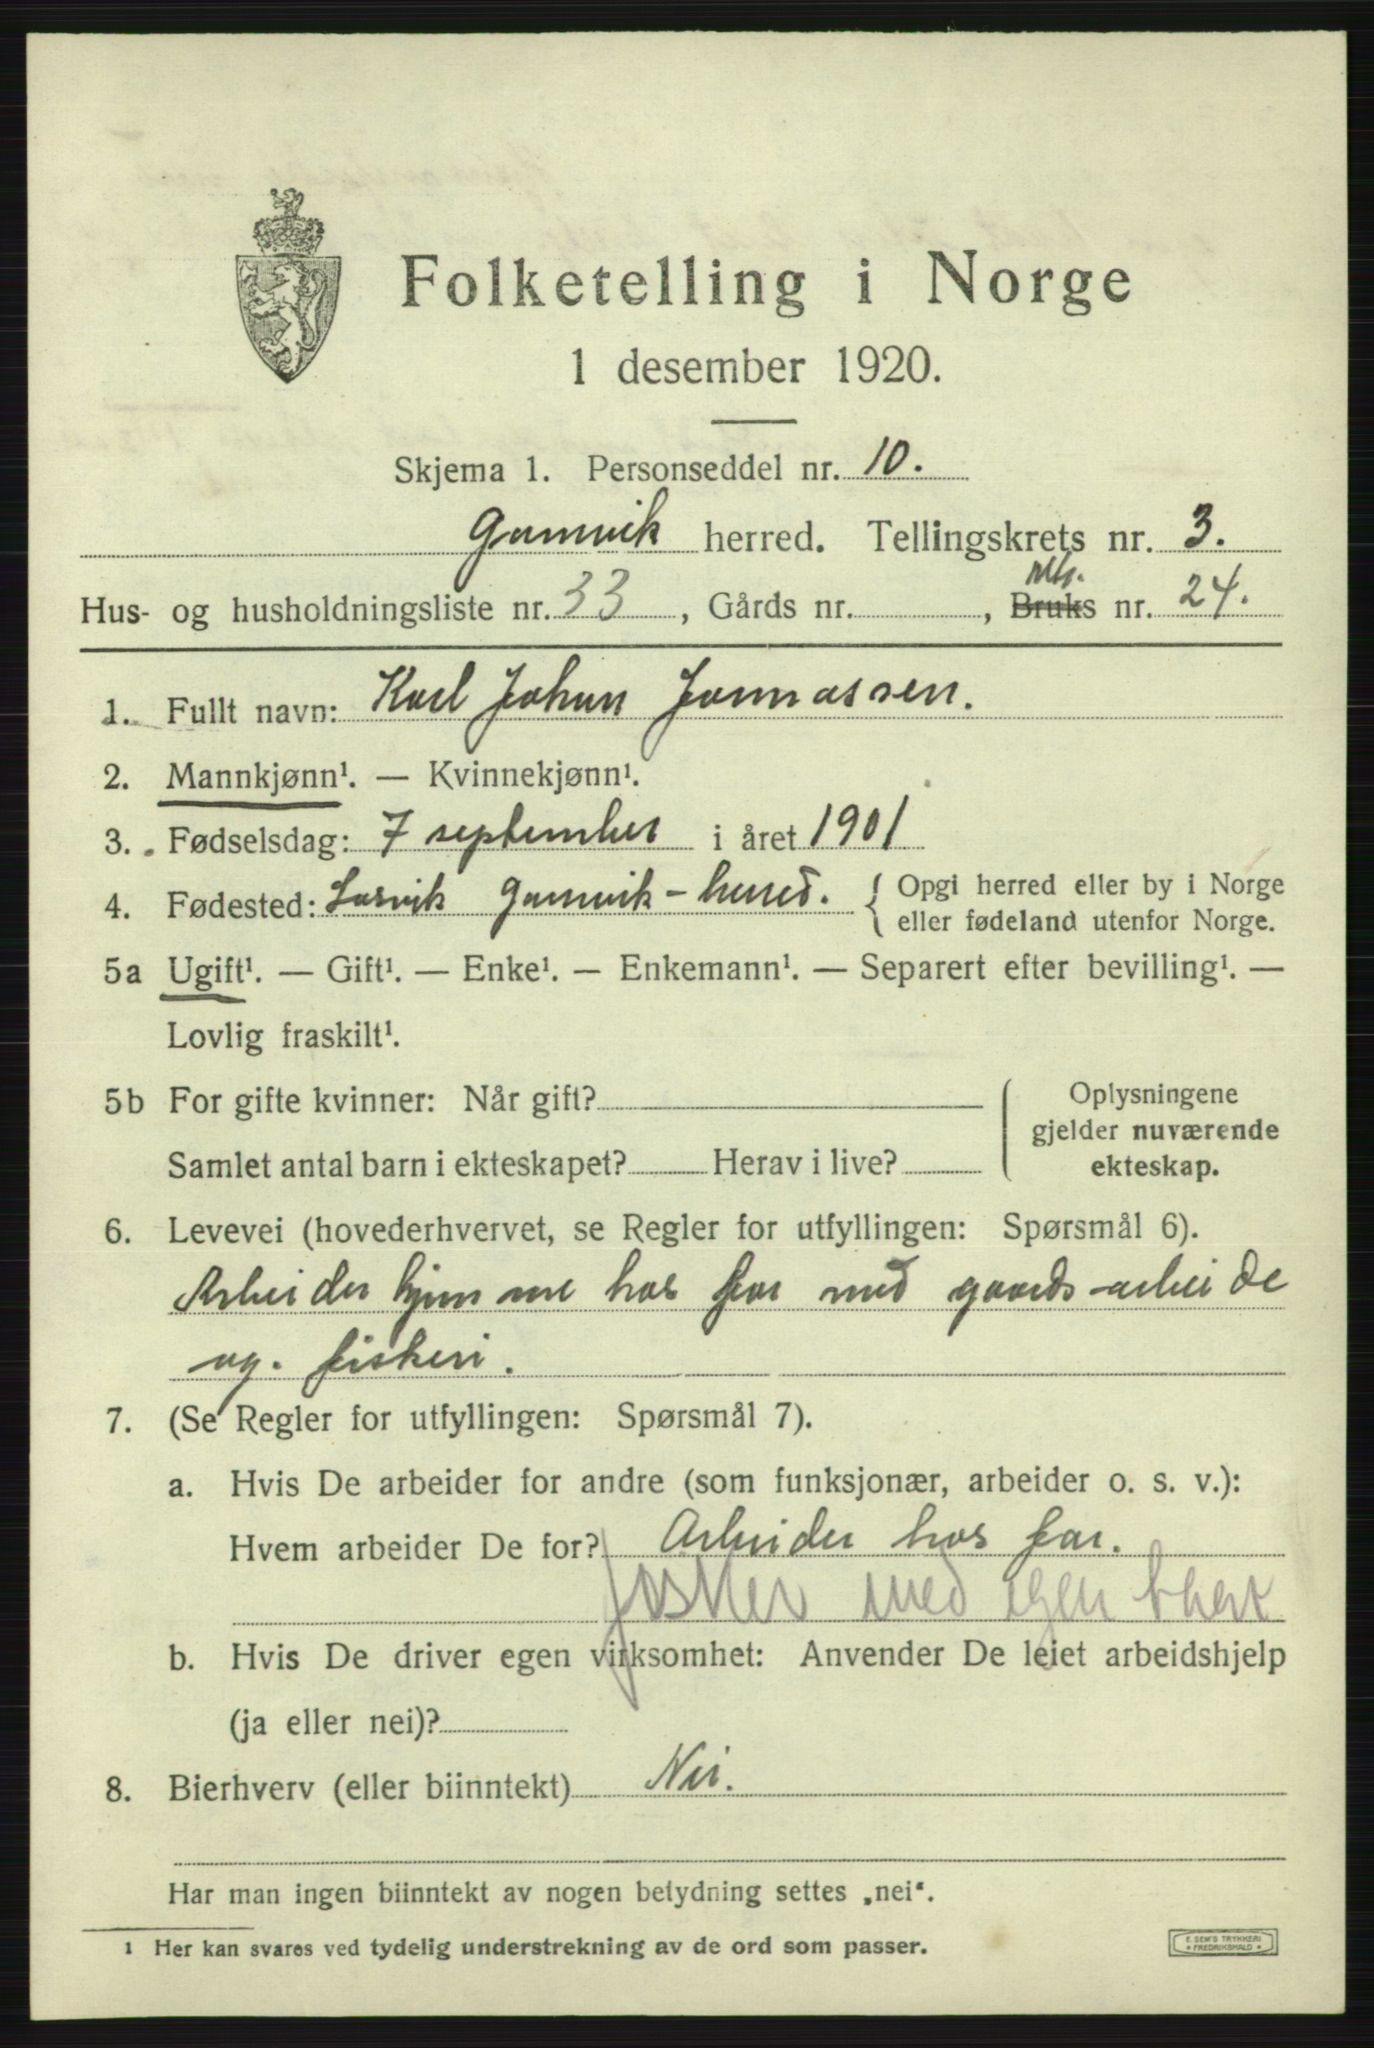 Folketelling i Norge
1 desember 1920.
Skjema 1. Personseddel nr. 10.
Gamvik herred. Tellingskrets nr. 3.
Hus- og husholdningsliste nr. 33, Gårds nr. , Bruks nr. 24.
1. Fullt navn: Karl Johan Jonnassen.
2. Mannkjønn¹. — Kvinnekjønn¹.
3. Fødselsdag: 7 september i året 1901
4. Fødested: Gamvik - herred. { Opgi herred eller by i Norge
eller fødeland utenfor Norge.
5a Ugift¹. — Gift¹. — Enke¹. — Enkemann¹. — Separert efter bevilling¹. —
Lovlig fraskilt¹.
5b For gifte kvinner: Når gift?
Samlet antal barn i ekteskapet? Herav i live?
Oplysningene
gjelder nuværende
ekteskap.
6. Levevei (hovederhvervet, se Regler for utfyllingen: Spørsmål 6).
Arbeider hjemme hos far med gaards-arbeide
og. fiskeri.
7. (Se Regler for utfyllingen: Spørsmål 7).
a. Hvis De arbeider for andre (som funksjonær, arbeider o. s. v.):
Hvem arbeider De for? Arbeider hos far.
fisker med egen
b. Hvis De driver egen virksomhet: Anvender De leiet arbeidshjelp
(ja eller nei)?
8. Bierhverv (eller biinntekt) Nei.
Har man ingen biinntekt av nogen betydning settes „nei“.
1 Her kan svares ved tydelig understrekning av de ord som passer.
E. SEM'S TRYKKERI
* FREDRIKSHALD *